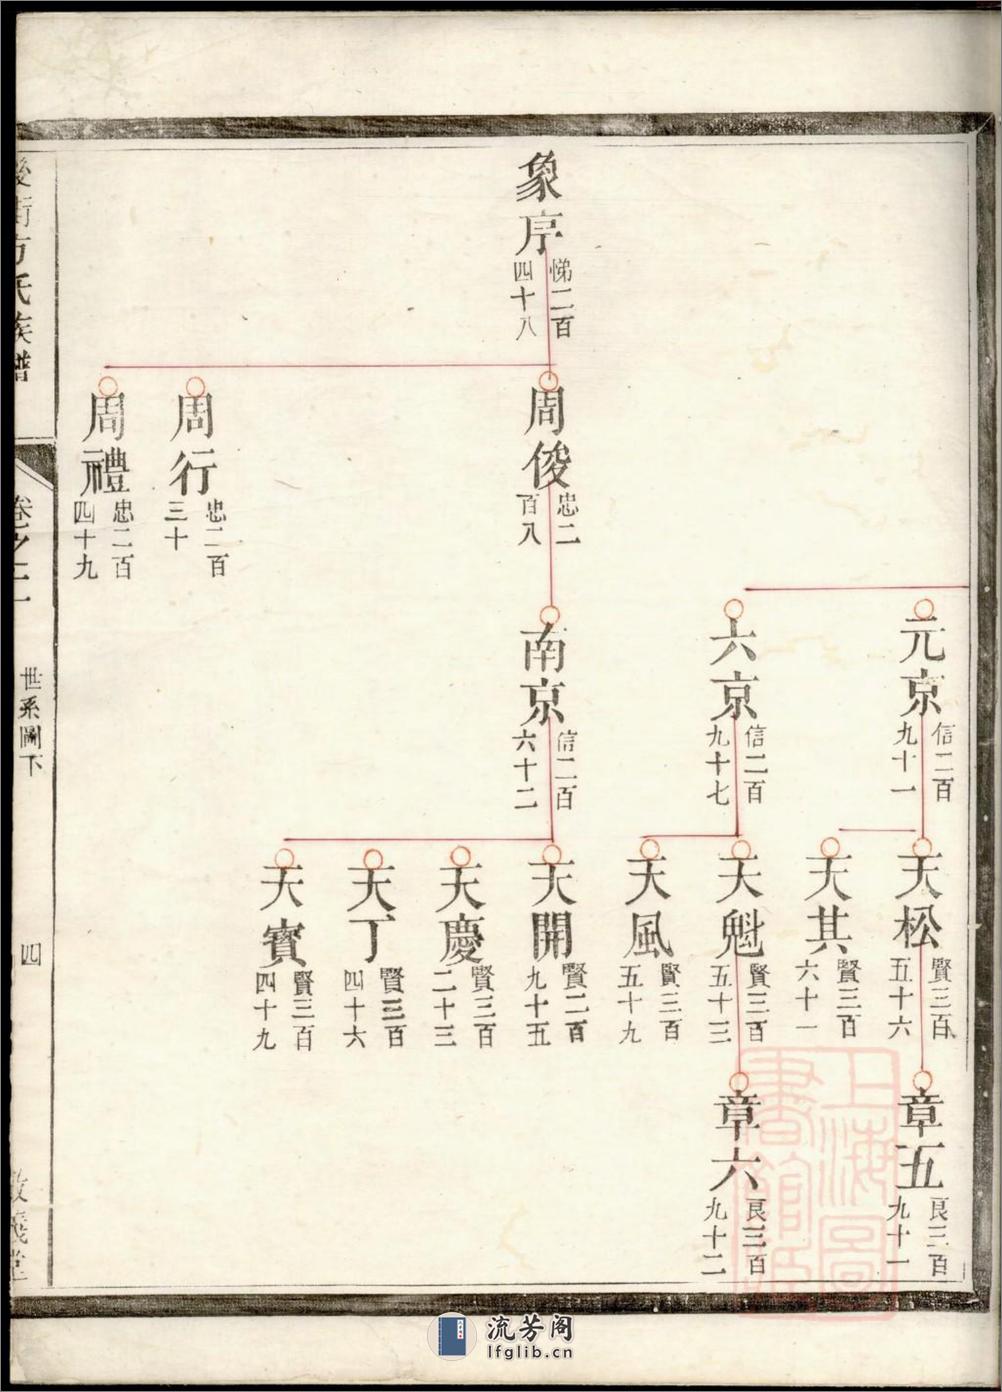 元京
信二百
九十一
六京
信二百
九十七
天松
賢三百
五十六
天其
賢三百
六十一
天魁
賢三百
五十三
天風
賢三百
五十九
章五
良三百
九十一
章六
良三百
九十二
象序
悌二百
四十八
周俊
忠二
百八
周行
忠二百
三十
周禮
忠二百
四十九
南京
信二百
六十二
天開
賢二百
九十五
天慶
賢三百
二十三
天丁
賢三百
四十六
天寶
賢三百
四十九
後街方氏族譜
卷之
世系圖下
四
敦義堂
上海圖
書館藏
流芳阁
lfglib.cn